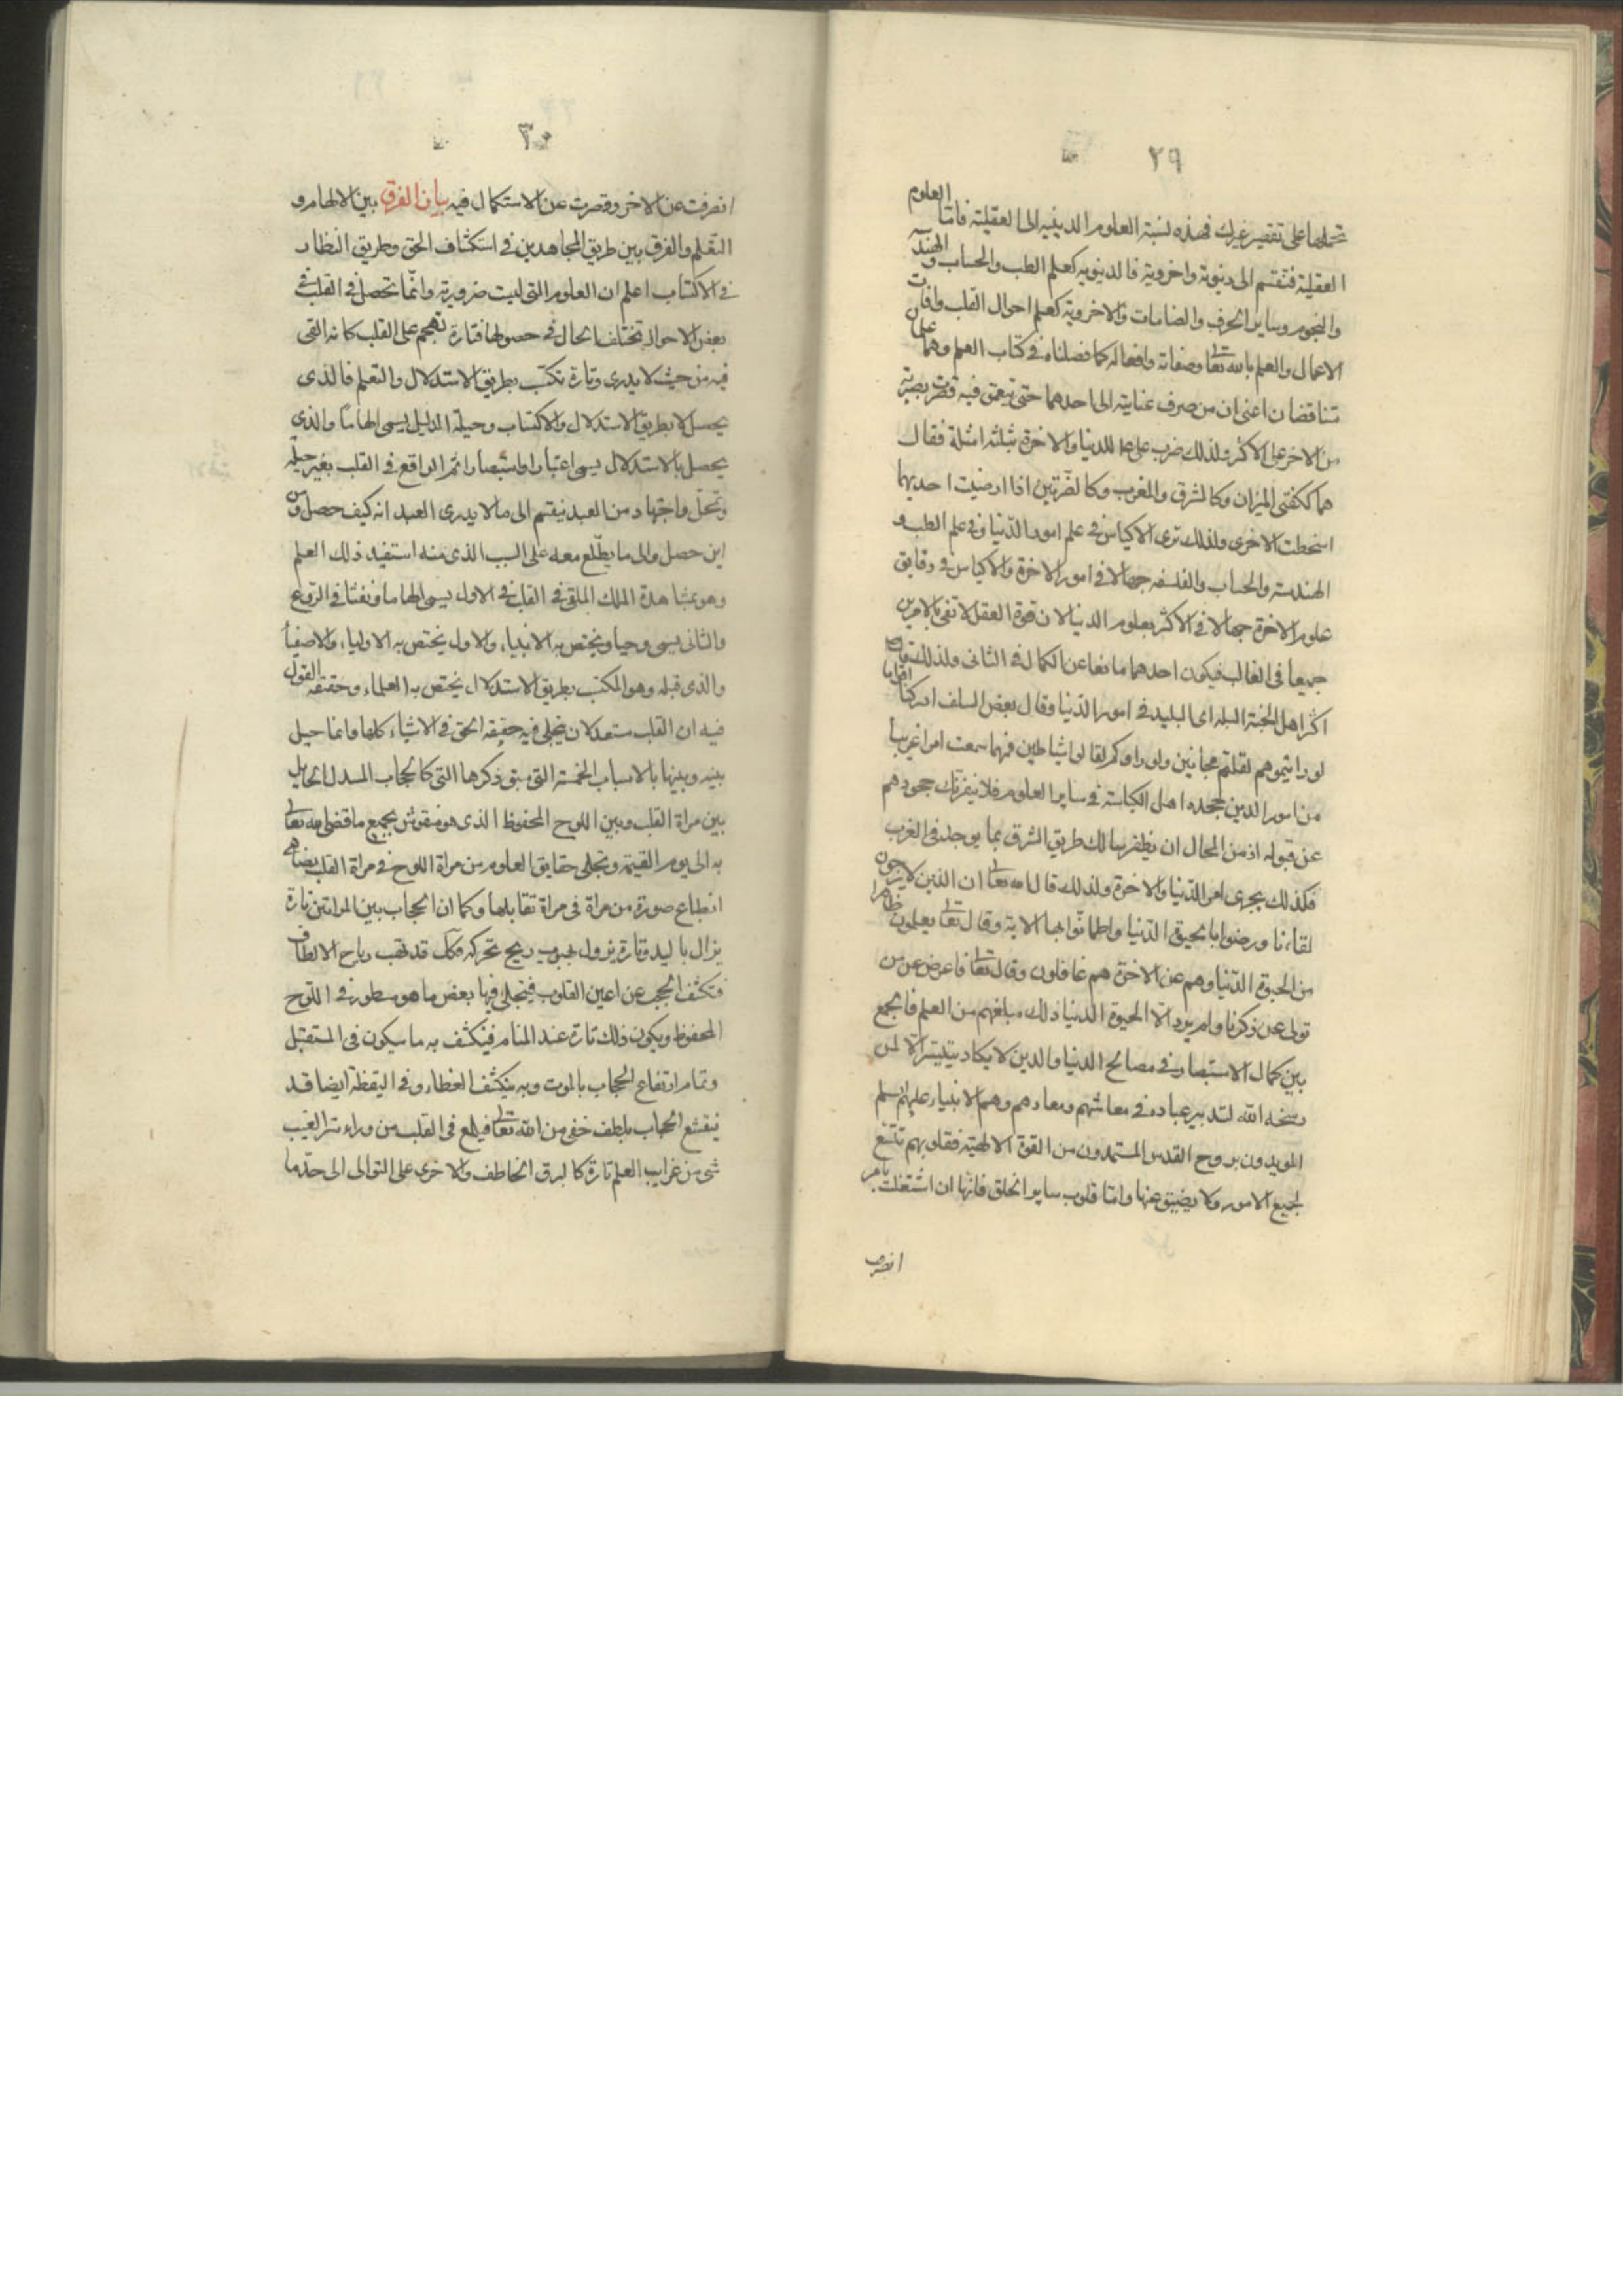 ٢٩
تحملها على تقصير غيرك فهذه نسبة العلوم الدينية الى العقلية فاما العلوم
العقلية فتنقسم الى دنيوية واخروية فالدنيوية كعلم الطب والحساب والهندسة
والنجوم وساير الحرف والصناعات والاخروية كعلم احوال القلب وافات
الاعمال والعلم بالله تعالى وصفاته وافعاله كما فصلناه في كتاب العلم وهما علمان
تنافضان اعنى ان من صرف عنايته الى احدهما حتى تعمق فيه قصرت بصيرته
من الاخر على الاكثر ولذلك ضرب على عم للدنيا والاخرة بثلثة امثلة فقال
هما ككفتى الميزان وكالشرق والمغرب وكالضرتين اذا ارضيت احديهما
اسخطت الاخرى ولذلك ترى الاكياس في علم امور الدنيا وفي علم الطب و
الهندسة والحساب والفلسفه جهالا في امور الاخرة والاكياس في دقايق
علوم الاخرة جهالا في الاكثر بعلوم الدنيا لان قوة العقل لا تفى بالامرين
جميعا في الغالب فيكون احدهما مانعا عن الكمال في الثانى ولذلك قال
اكثر اهل الجنة البله اى البليد في امور الدنيا وقال بعض السلف ادركنا اقواما
لو رايتموهم لقلتم مجانين ولو راوكم لقالوا شياطين فمهما سمعت امرا غريبا
من امور الدين جحده اهل الكياسة في ساير العلوم فلا ينفرنك جحودهم
عن قبوله اذ من المحال ان يظفر سالك طريق الشرق بما يوجد في الغرب
فكذلك يجرى امر الدنيا والاخرة ولذلك قال الله تعالى ان الذين لا يرجون
لقاءنا ورضوا بالحيوة الدنيا واطمانوا بها الاية وقال تعالى يعلمون ظاهرا
من الحيوة الدنيا وهم عن الاخرة هم غافلون وقال تعالى فاعرض عن من
تولى عن ذكرنا ولم يرد الا الحيوة الدنيا ذلك مبلغهم من العلم فالجمع
بين كمال الاستبصار في مصالح الدنيا والدين لا يكاد يتيسر الا لمن
رسخه الله لتدبير عباده في معاشهم ومعادهم وهم الانبياء عليهم السلم
المويدون بروح القدس المستمدون من القوة الالهية فقلوبهم تتسع
لجميع الامور ولا يضيق عنها واما قلوب ساير الخلق فانها ان اشتغلت بامر
انصرف
٣٠
انصرفت عن الاخر وقصرت عن الاستكمال فيه بيان الفرق بين الالهام و
التعلم والفرق بين طريق المجاهدين في استكشاف الحق وطريق النظار
في الاكتساب اعلم ان العلوم التى ليست ضرورية وانما تحصل في القلب في
بعض الاحوال تختلف الحال في حصولها فتارة تهجم على القلب كانه القى
فيه من حيث لا يدرى وتارة تكتسب بطريق الاستدلال والتعلم فالذى
يحصل لا بطريق الاستدلال والاكتساب وحيلة الدليل يسمى الهاما والذى
يحصل بالاستدلال يسمى اعتبارا واستبصارا ثم الواقع في القلب بغير حيلة
وتمحل واجتهاد من العبد ينقسم الى ما لا يدرى العبد انه كيف حصل ومن
اين حصل والى ما يطلع معه على السبب الذى منه استفيد ذلك العلم
وهو مشاهدة الملك الملقى في القلب في الاول يسمى الهاما ونفثا في الروع
والثانى يسمى وحيا ويختص به الانبياء والاول يختص به الاولياء والاصفيا
والذى قبله وهو المكتسب بطريق الاستدلال يختص به العلماء وحقيقة القول
فيه ان القلب مستعد لان ينجلى فيه حقيقة الحق في الاشياء كلها وانما حيل
بينه وبينها بالاسباب الخمسة التى سبق ذكرها التى كالحجاب المسدل الحايل
بين مراة القلب وبين اللوح المحفوظ الذى هو منقوش بجميع ما قضى الله تعالى
به الى يوم القيمة وتجلى حقايق العلوم من مراة اللوح في مراة القلب يضاهى
انطباع صورة من مراة في مراة تقابلها وكما ان الحجاب بين المراتين تارة
يزال باليد وتارة يزول بهبوب ريح تحركه فكك قد تهب رياح الالطاف
فتكشف الحجب عن اعين القلوب فينجلى فيها بعض ما هو مسطور في اللوح
المحفوظ ويكون ذلك تارة عند المنام فينكشف به ما سيكون في المستقبل
وتمام ارتفاع الحجاب بالموت وبه ينكشف الغطاء وفي اليقظة ايضا قد
ينقشع الحجاب بلطف خفى من الله تعالى فيلمع في القلب من وراء ستر الغيب
شى من غرايب العلم تارة كالبرق الخاطف والاخرى على التوالى الى حد ما